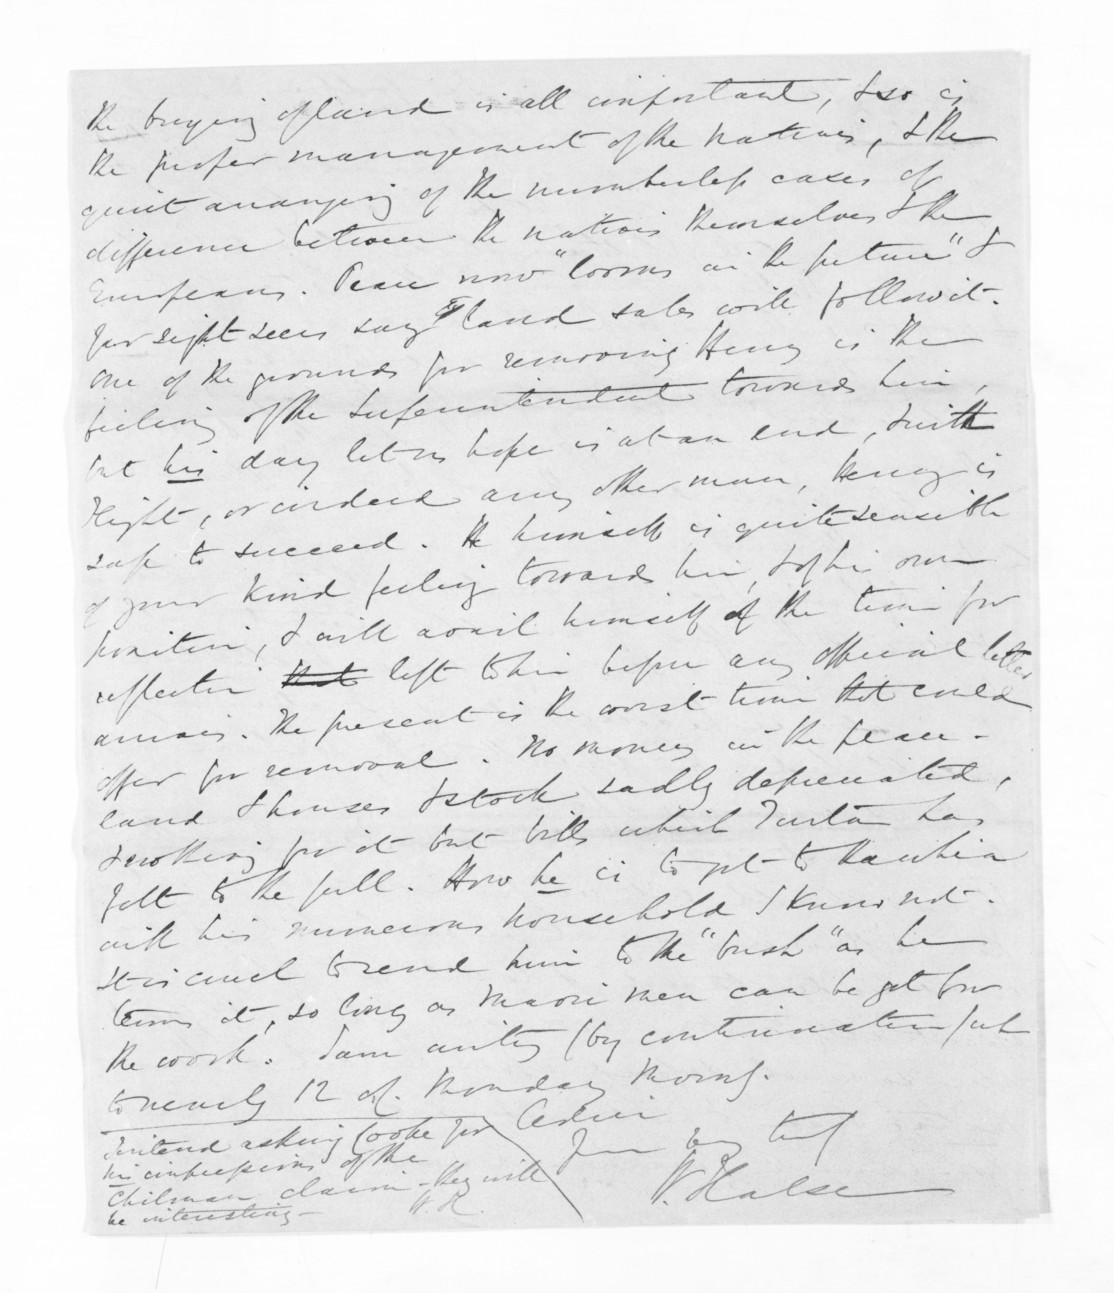 the buying of land is all important, & so is
the proper management of the natives, & the
quiet arranging of the numberless cases of
difference between the natives themselves & the
Europeans. Peace now "looms in the future" &
far sight seers say land sales will follow it.
One of the grounds for removing Henry is the
feeling of the Superintendent towards him,
but his day let us hope is at an end, & with
Flight, or indeed any other man, Henry is
safe to succeed. He himself is quite sensible
of your kind feeling towards him, & of his own
position, & will avail himself of the time for
reflection left to him before any official letter
arrives. The present is the worst time that could
offer for removal. No money in the place -
land & houses & stock sadly depreciated,
& nothing for it but bills which Turton has
felt to the full. How he is to get to Kawhia
with his numerous household I know not.
It is cruel to send him to the "bush" as he
terms it, so long as Maori men can be got for
the work. I am writing (by continuation) at
to nearly 12 of. Monday Morng.
Adieu
Yours very truly
W. Halse
I intend asking Cooke for
his impressions of the
Chilman claim - they will
be interesting -
W. H.